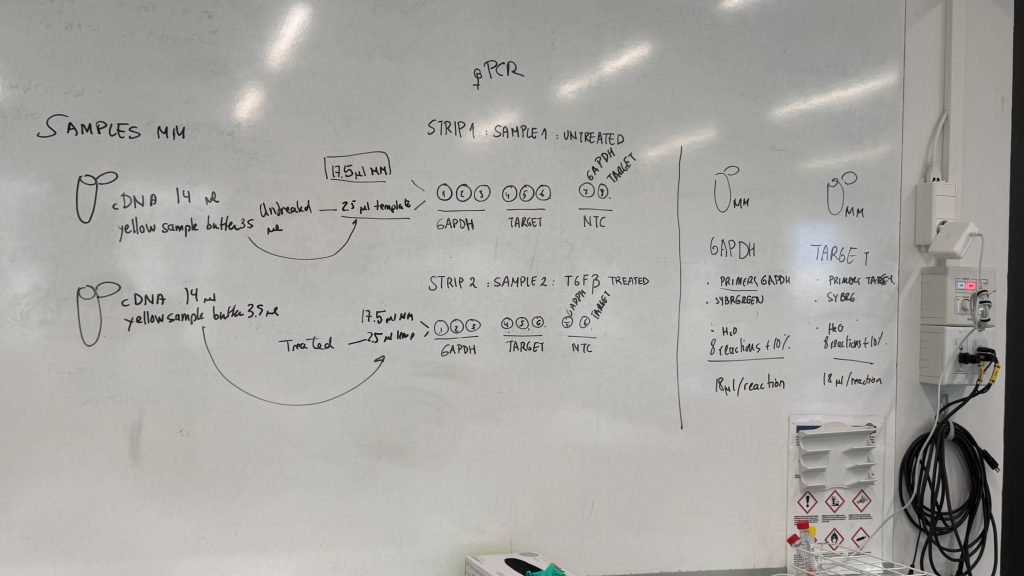 qPCR
SAMPLES MM
cDNA 14 μl
yellow sample buffer 3.5 μl
Untreated
17.5 μl MM
2.5 μl template
STRIP 1 : SAMPLE 1 : UNTREATED
GAPDH TARGET
1 2 3 4 5 6 7 8
GAPDH TARGET NTC
cDNA 14 μl
yellow sample buffer 3.5 μl
Treated
17.5 μl MM
2.5 μl
STRIP 2 : SAMPLE 2 : TGFβ TREATED
GADPH TARGET
1 2 3 4 5 6
GAPDH TARGET NTC
MM
GAPDH
. PRIMERS GAPDH
. SYBRGREEN
. H2O
8 reactions + 10%
18 μl/reaction
MM
TARGET
. PRIMERS TARGET
. SYBRG
. H2O
8 reactions + 10%.
18 μl/reaction